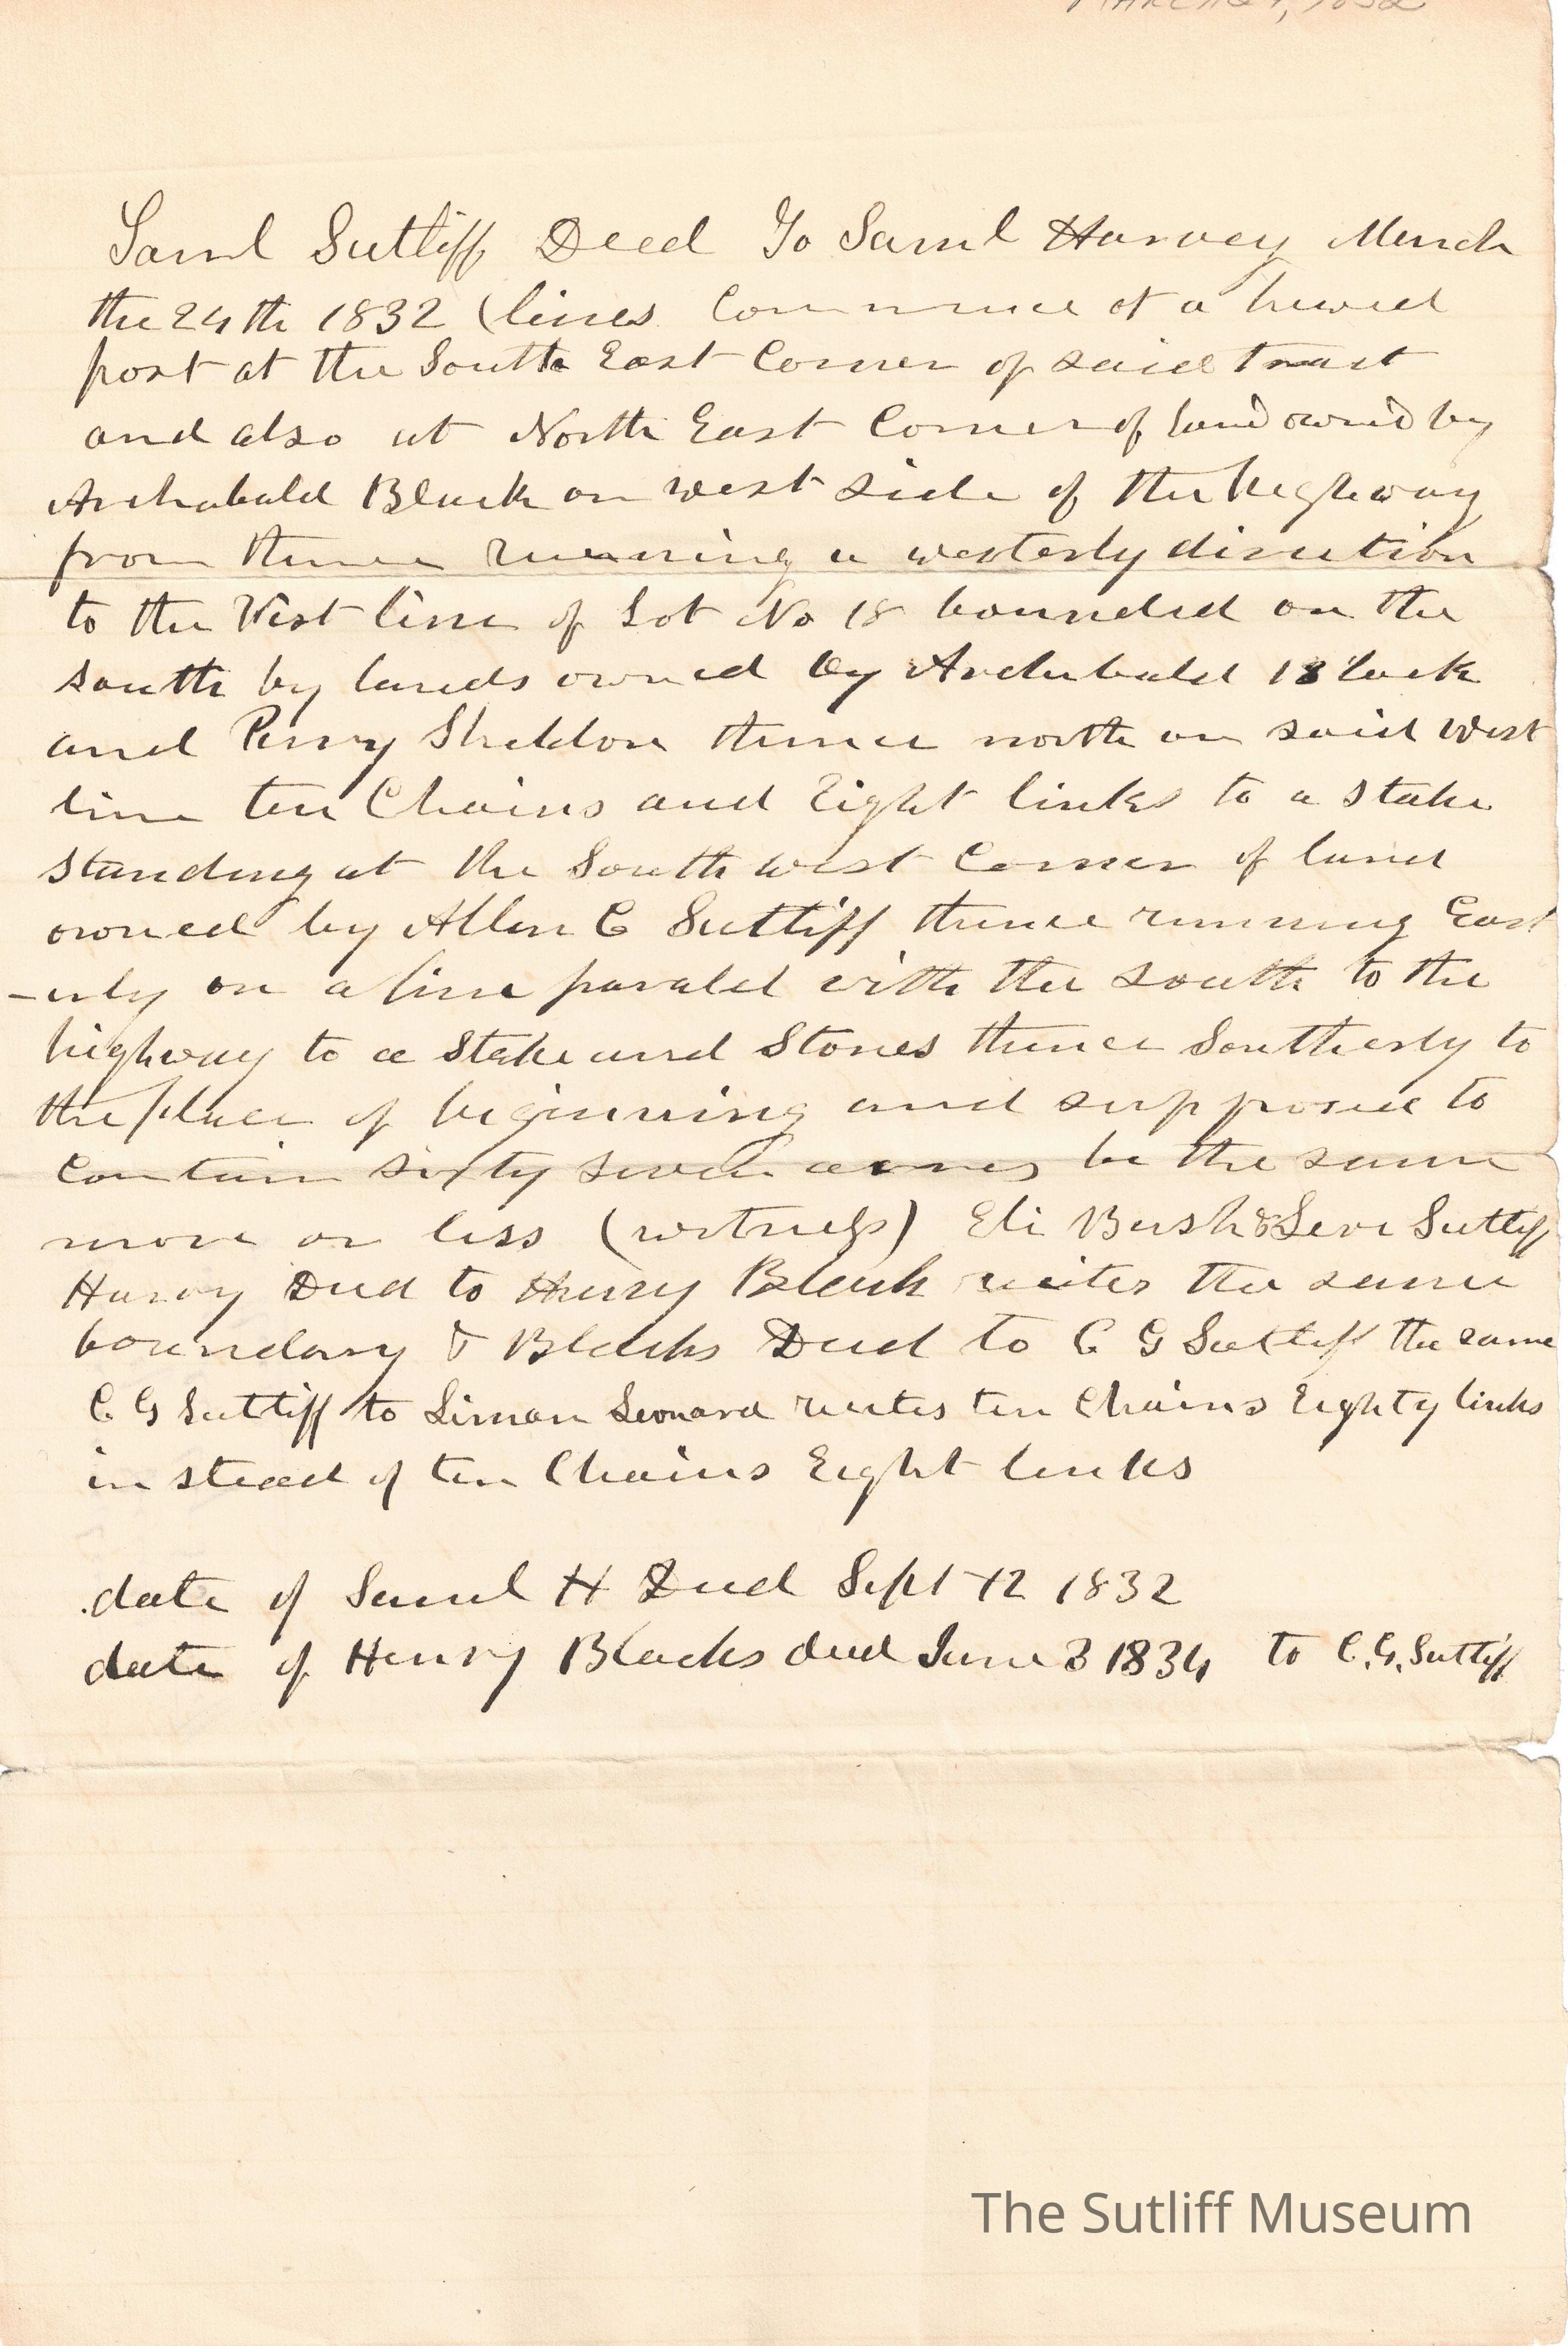 March 24, 1832
Saml Sutliff Deed To Saml Harvey March
the 24th 1832 (lines Commence at a hewed
post at the South East Corner of said tract
and also at North East Corner of land ownd by
Archabald Black on west side of the highway
from thence running a westerly direction
to the West line of Lot No 18 bounded on the
south by lands owned by Archabald Black
and Perry Sheldon thence north on said West
line ten Chains and Eight links to a Stake
standing at the South west Corner of land
owned by Allen C Sutliff thence running East
-erly on a line paralel with the south to the
highway to a Stake and Stones thence Southerly to
the place of beginning and supposed to
Contain sixty seven acres be the same
more or less (witness) Eli Bush & Levi Sutliff
Harvy Deed to Henry Black recites the same
boundary & Blacks Deed to C G Sutliff the same
C G Sutliff to Liman Leonard recites ten Chains Eighty links
in stead of ten Chains Eight links
date of Saml H Deed Sept 12 1832
date of Henry Blacks deed June 3 1834 to C. G. Sutliff
The Sutliff Museum